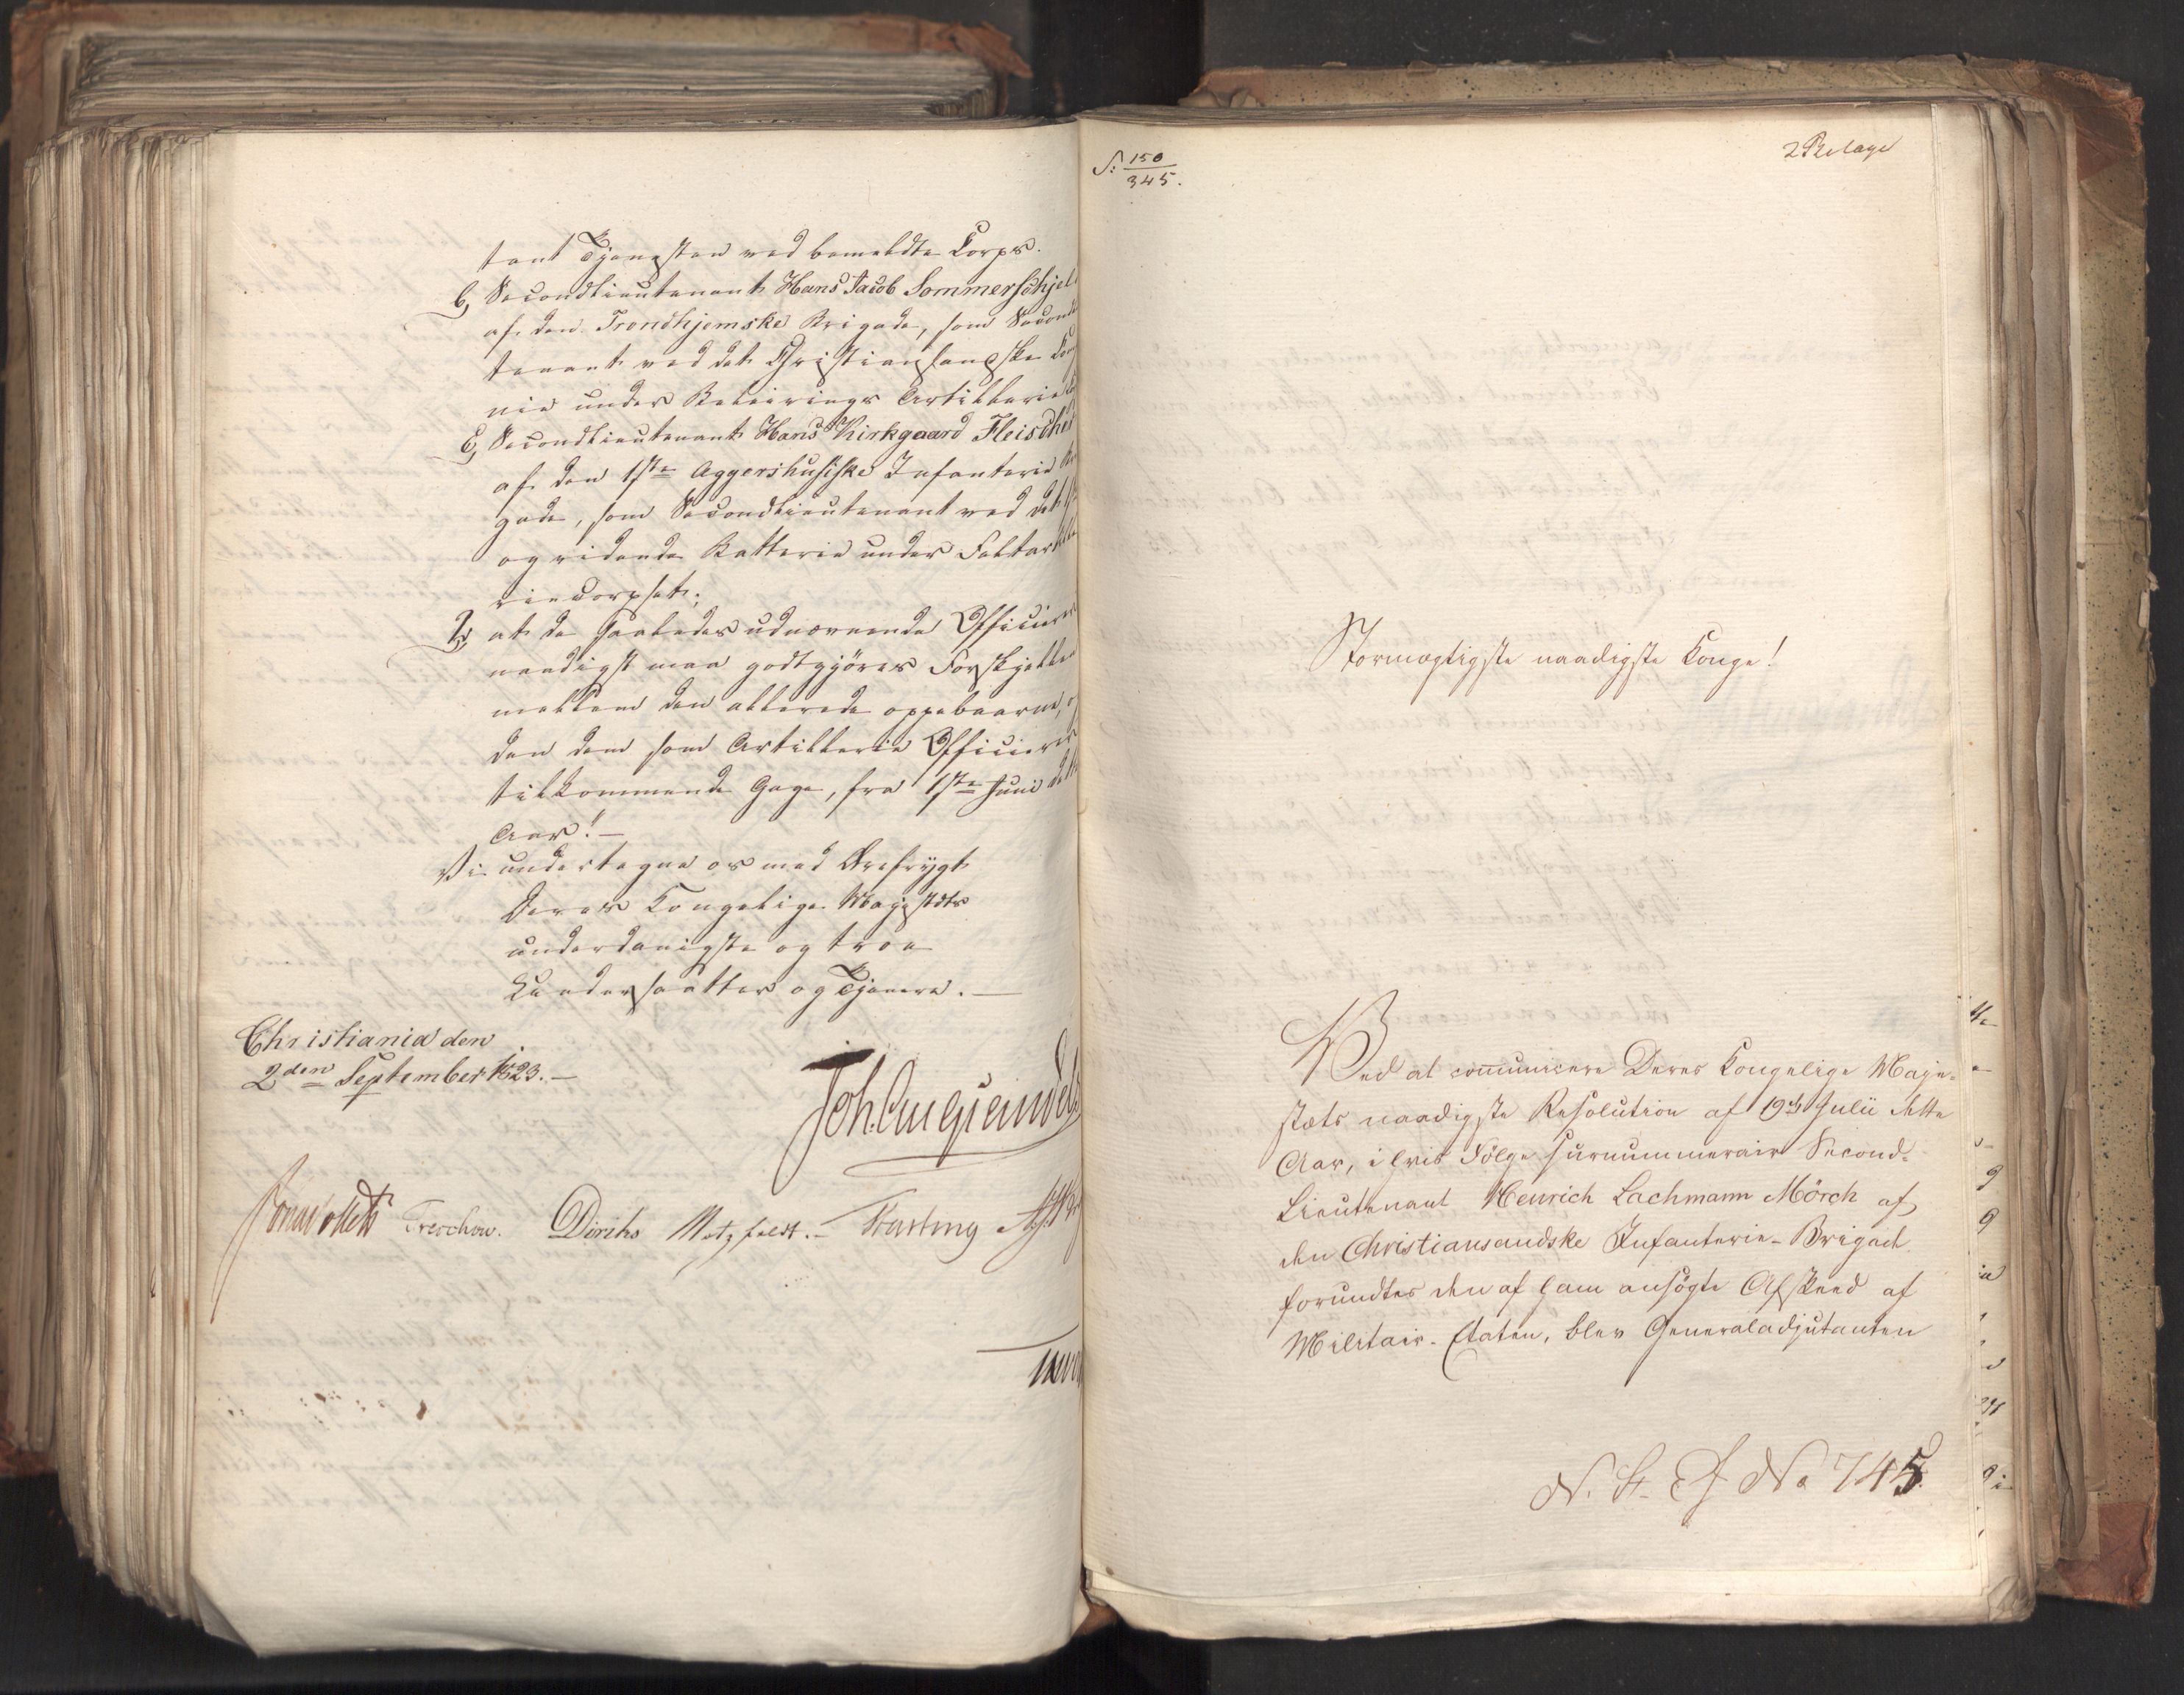 tant Tjenesten ved bemeldte Corps.
b, Secondlieutenant Hans Jacob Sommerschjel
af den Trondhjemske Brigade, som Second
tenant ved det Christiansandske Com
nie under Beleirings Artillerie
C, Secondlieutenant Hans Kirkgaard Fleischer
af den 1ste Aggershusiske Infanterie Bri
gade, som Secondlieutenant ved det
og ridende Batterie under Feltartille
riecorpset;
2, at de saaledes udnævnende Officierer
naadigst maa godtgjöres Forskjellen
mellem den allerede oppebaarne, o
den dem som Artillerie Officierer
tilkommende Gage, fra 1ste Juni dette
Aar! —
Vi undertegne os med Ærefrygt
Deres Kongelige Majestæts
underdanigste og troe
Undersaatter og Tjenere. —
Christiania den
2den September 1823. —
Jonas Collett Treschow. Diriks Motzfeldt. —
S: 150
345.
2 Bilage
Stormægtigste naadigste Konge!
Ved at communicere Deres Kongelige Maje-
stæts naadigste Resolution af 19de Julii dette
Aar, i hvis Fölge surnummerair Second-
Lieutenant Henrich Lachmann Mörch af
den Christiansandske Infanterie-Brigad
forundtes den af ham ansögte Afskeed af
Militair-Etaten, blev Generaladjutanten
N. St. No 745